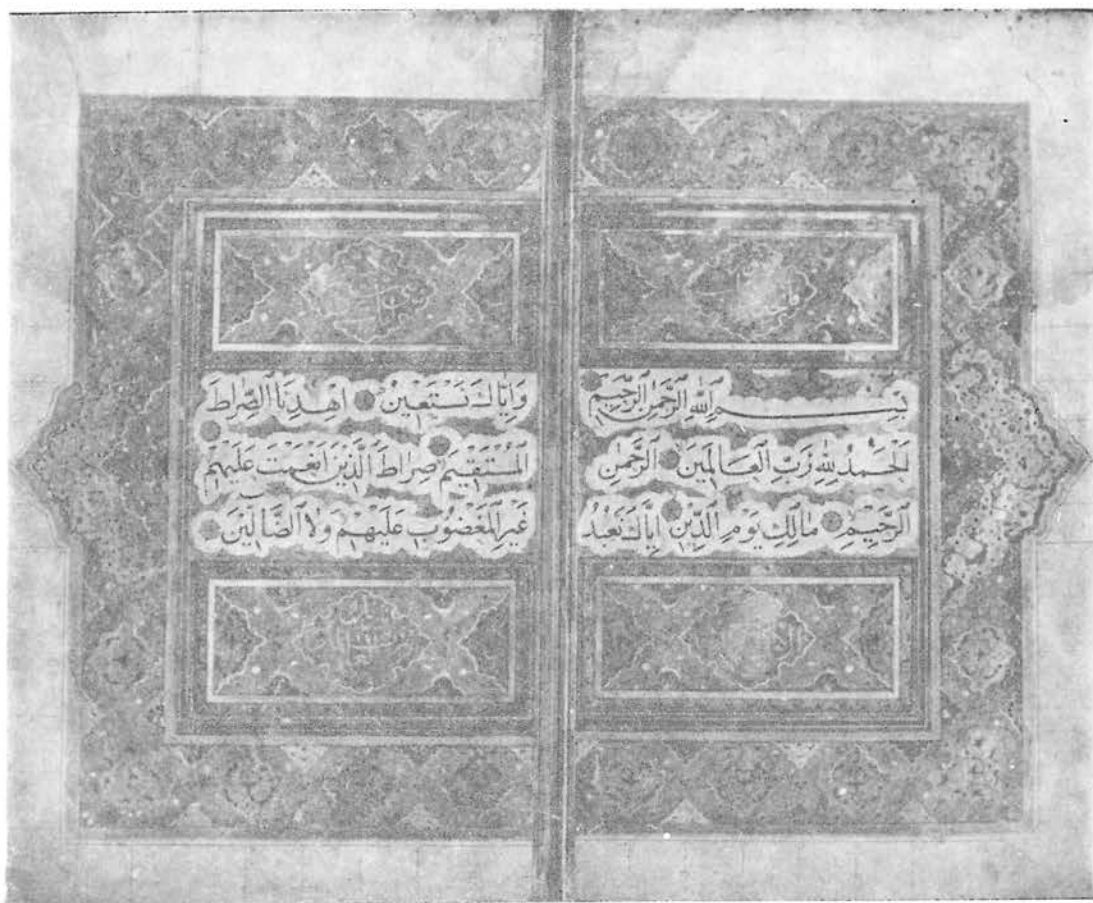 بِسْمِ اللهِ الرَّحْمٰنِ الرَّحِيْمِ
اَلْحَمْدُ لِلّٰهِ رَبِّ الْعَالَمِيْنَ الرَّحْمٰنِ
الرَّحِيْمِ مَالِكِ يَوْمِ الدِّيْنِ اِيَّاكَ نَعْبُدُ
وَاِيَّاكَ نَسْتَعِيْنُ اِهْدِنَا الصِّرَاطَ
الْمُسْتَقِيْمَ صِرَاطَ الَّذِيْنَ اَنْعَمْتَ عَلَيْهِمْ
غَيْرِ الْمَغْضُوْبِ عَلَيْهِمْ وَلَا الضَّالِّيْنَ